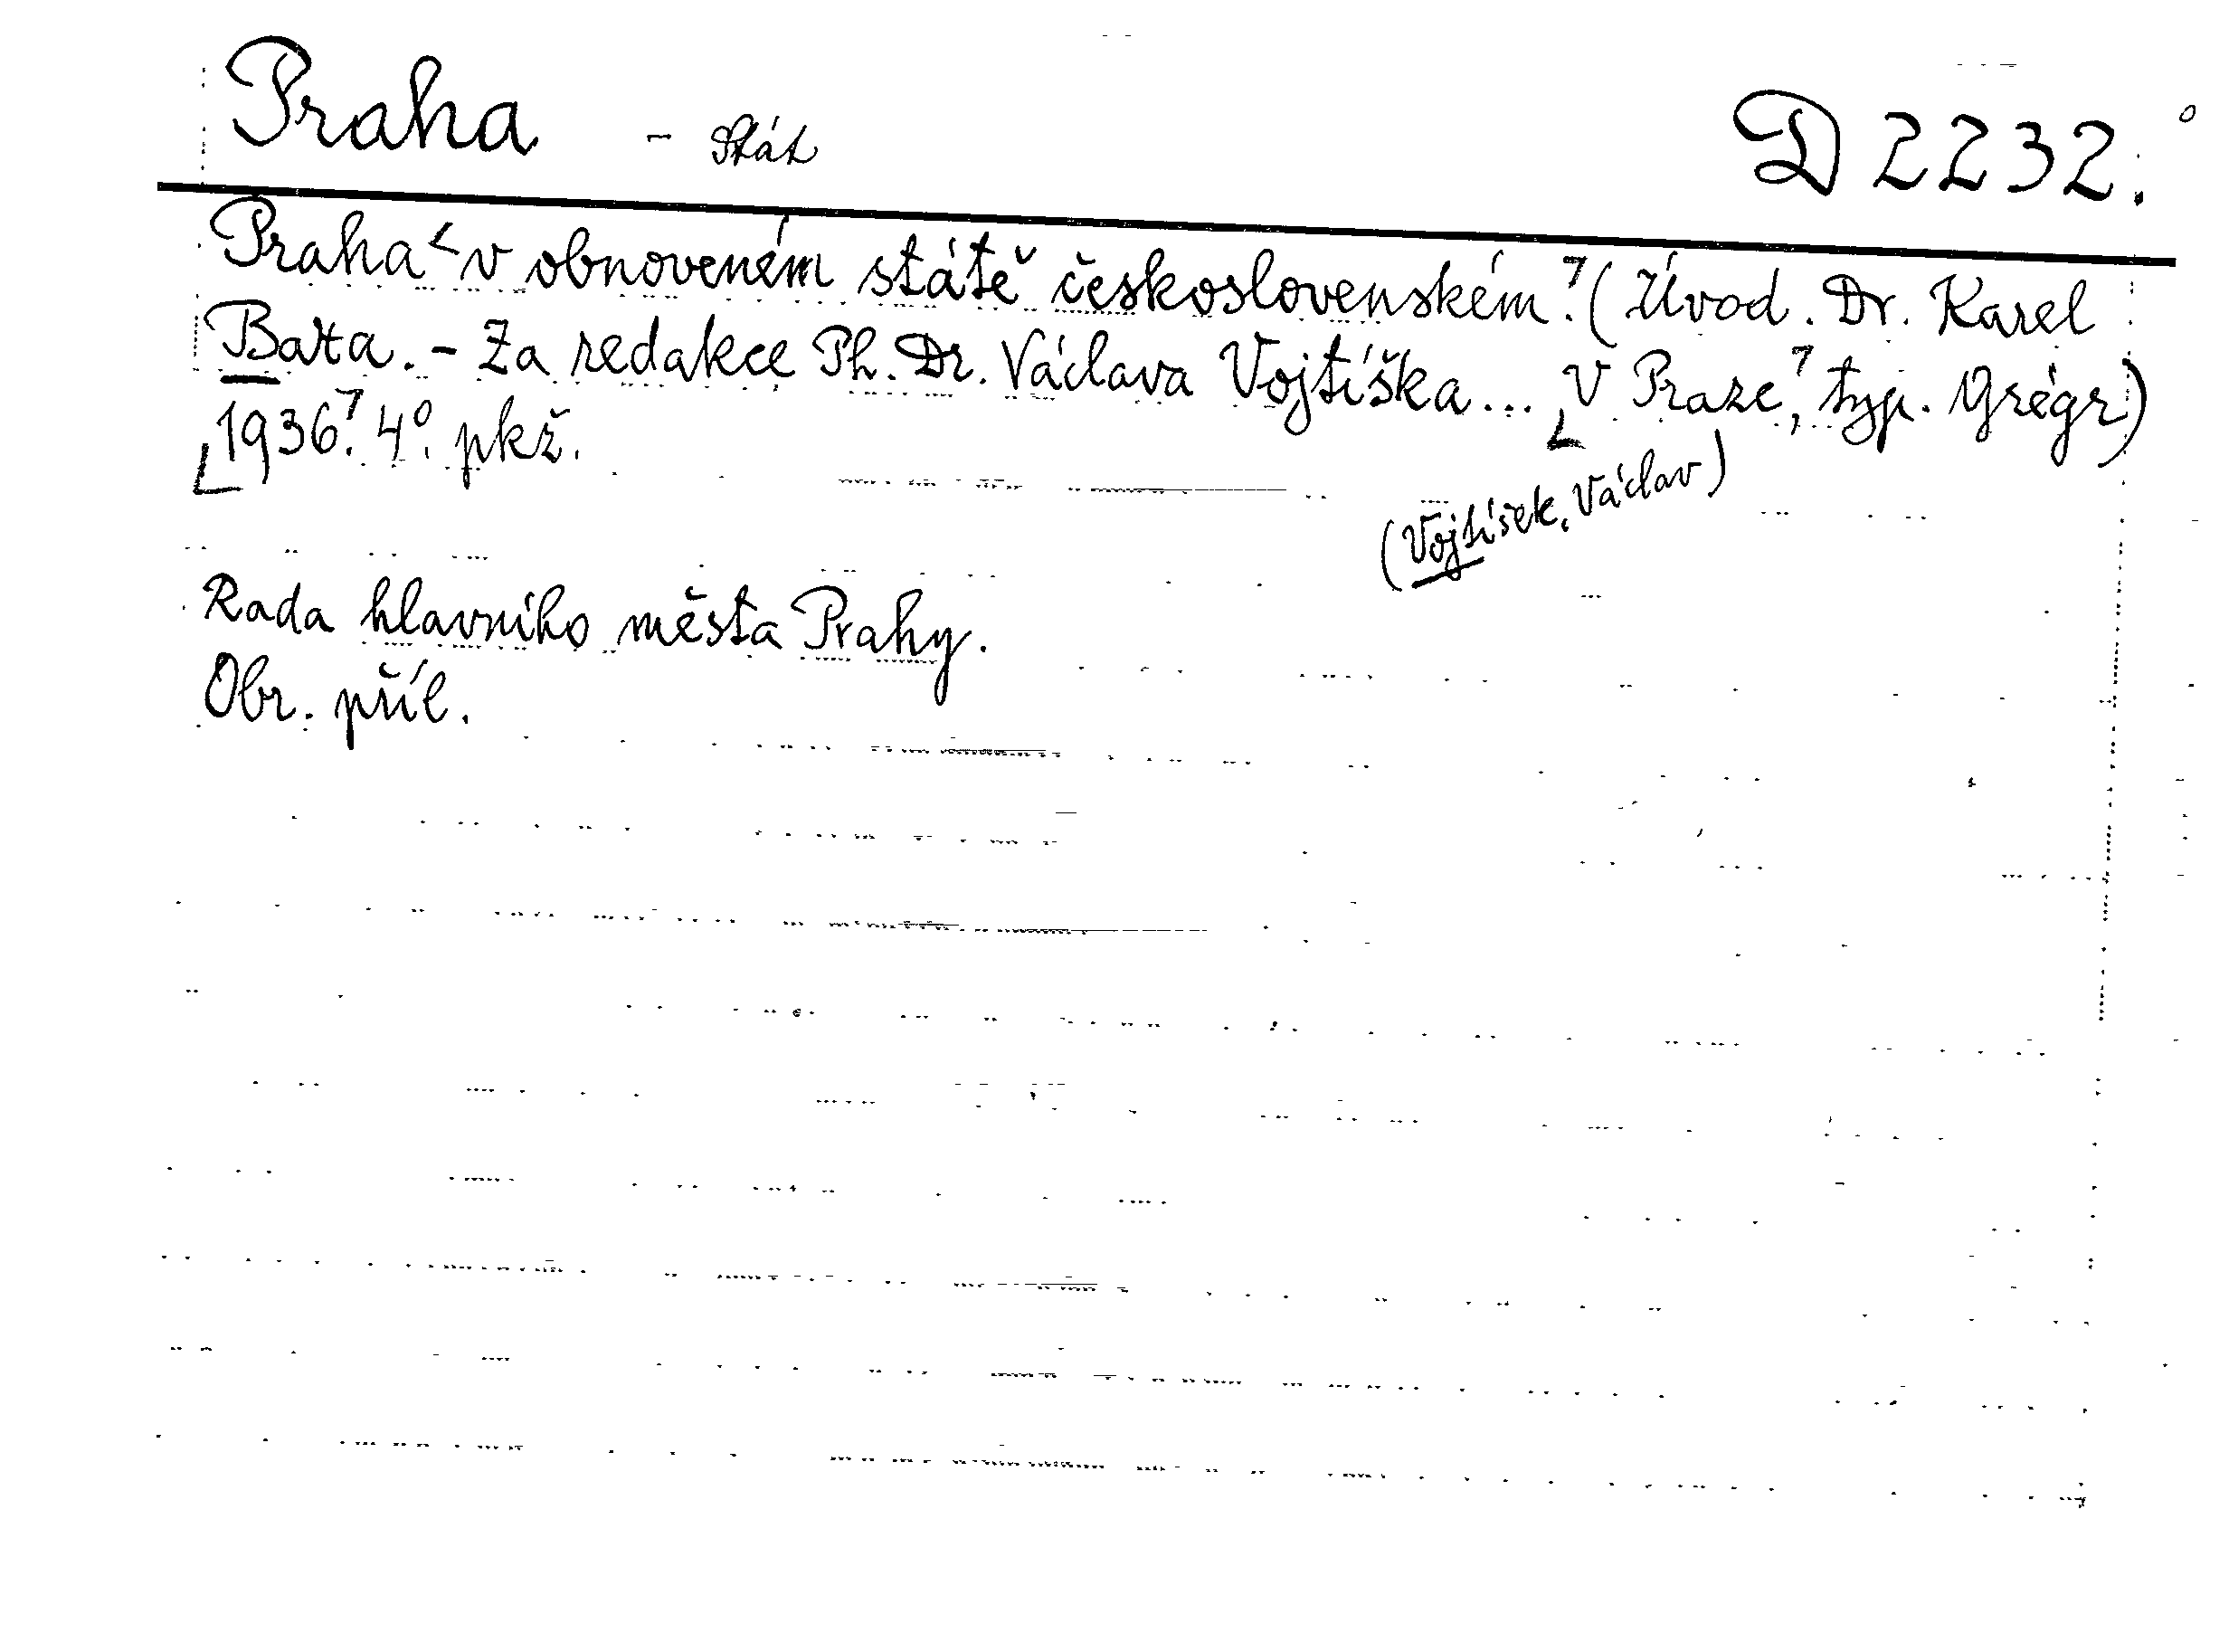 Praha - stát D 2232.
Praha v obnoveném státě československém. (Úvod. Dr. Karel
Baxa. - Za redakce Ph. Dr. Václava Vojtíška... V Praze, typ. Grégr)
1936. 4°. pkž.
(Vojtíšek, Václav)
Rada hlavního města Prahy.
Obr. příl.